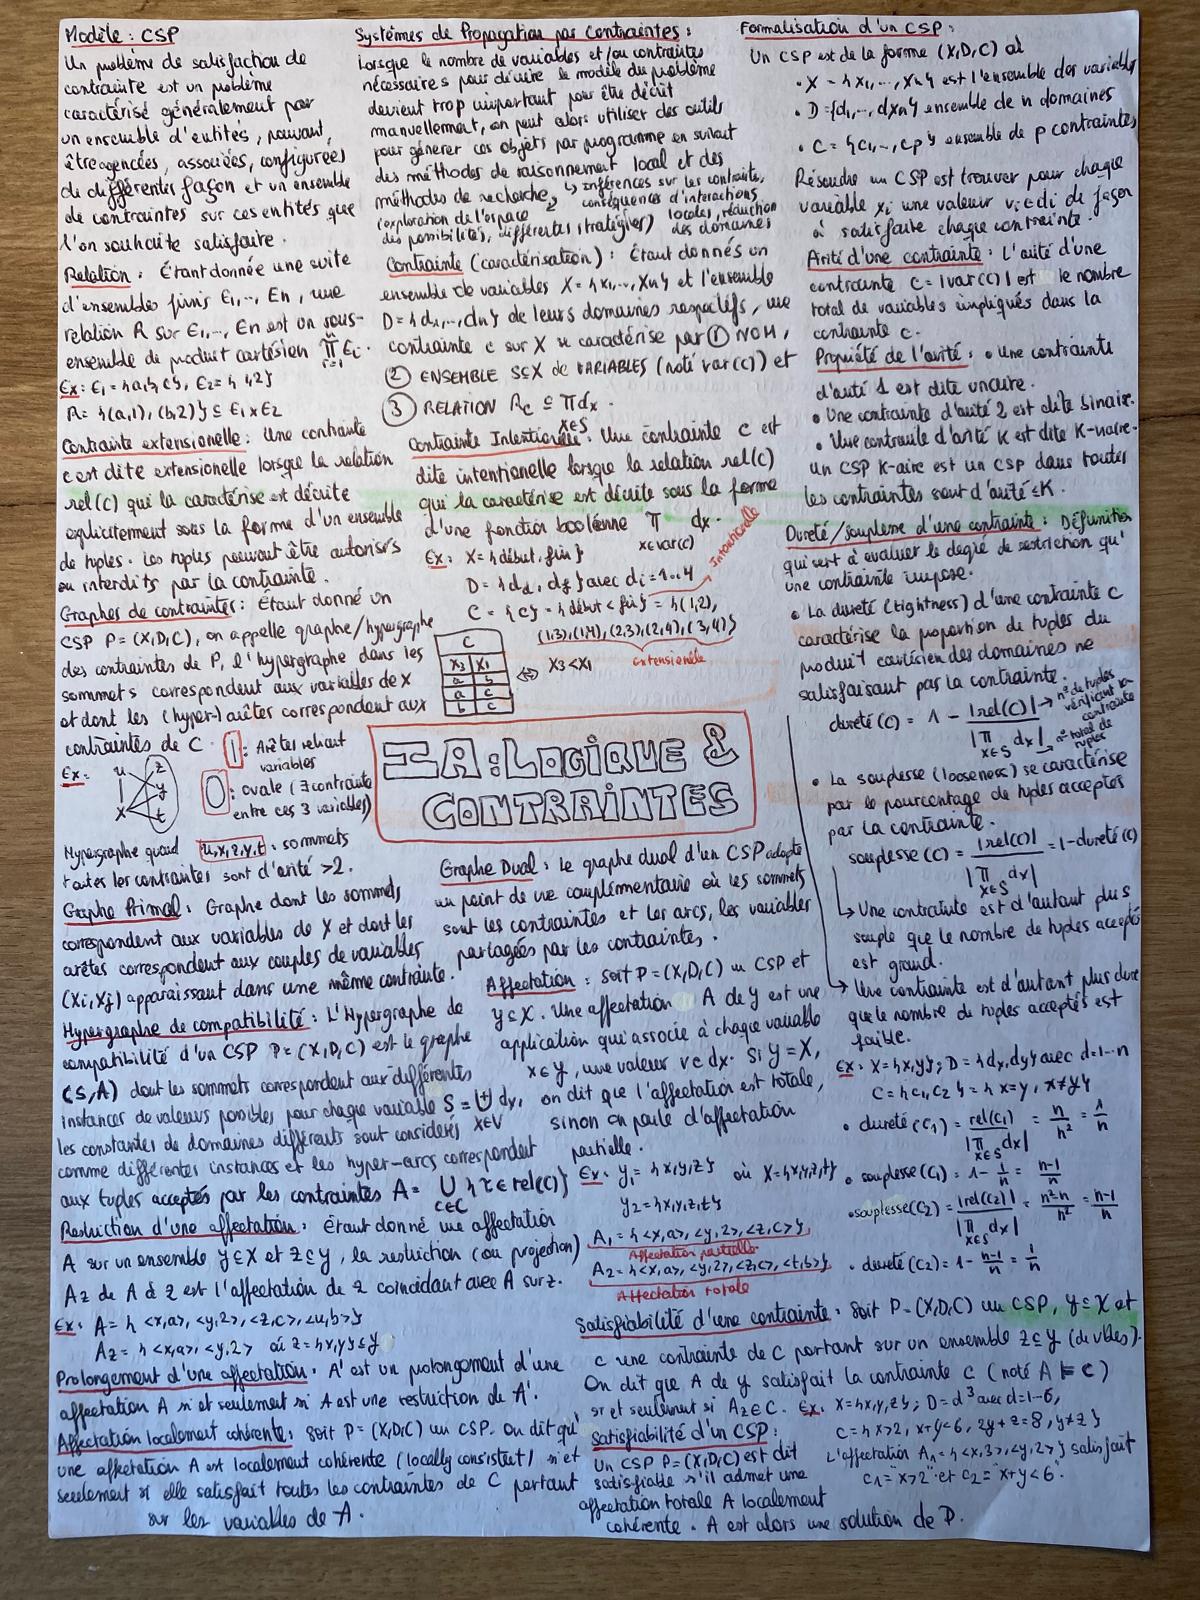 Modèle : CSP
Un problème de satisfaction de
contrainte est un problème
caractérisé généralement par
un ensemble d'entités, pouvant
être agencées, associées, configurées
de différentes façon et un ensemble
de contraintes sur ces entités que
l'on souhaite satisfaire.
Relation : Étant donnée une suite
d'ensembles finis E1,.., En, une
relation R sur E1,..., En est un sous-
ensemble de produit cartésien π Ei.
i=1
n
Ex : E1 = {a,b,c}, E2 = {1,2}
R = {(a,1), (b,2)} ⊆ E1 x E2
Contrainte extensionelle : Une contrainte
c est dite extensionelle lorsque la relation
rel(c) qui la caractérise est décrite
explicitement sous la forme d'un ensemble
de tuples. Les tuples peuvent être autorisés
ou interdits par la contrainte.
Graphes de contraintes : Étant donné un
CSP P=(X,D,C), on appelle graphe/hypergraphe
des contraintes de P, l'hypergraphe dans les
sommets correspondent aux variables de X
et dont les (hyper-)arêtes correspondent aux
contraintes de C.
Ex :
u z
y
x t
| : Arêtes reliant
variables
O : ovale (∃ contrainte
entre ces 3 variables)
u,x,z,y,t : sommets
Hypergraphe quand
toutes les contraintes sont d'arité >2.
Graphe Primal : Graphe dont les sommets
correspondent aux variables de X et dont les
arêtes correspondent aux couples de variables
(xi, xj) apparaissant dans une même contrainte.
Hypergraphe de compatibilité : L'Hypergraphe de
compatibilité d'un CSP P=(X,D,C) est le graphe
(S,A) dont les sommets correspondent aux différentes
instances de valeurs possibles pour chaque variable S = ⊎ dx,
x∈V
les constantes de domaines différents sont considérés
comme différentes instances et les hyper-arcs correspondent
aux tuples acceptés par les contraintes A = ∪ {τ ∈ rel(c)}
c∈C
Restriction d'une affectation : Étant donné une affectation
A sur un ensemble y⊆X et z⊆y, la restriction (ou projection)
Az de A à z est l'affectation de z coïncidant avec A sur z.
Ex : A = {<x,a>, <y,2>, <z,c>, <u,b>}
Az = {<x,a>, <y,2> où z={x,y}⊆y
Prolongement d'une affectation : A' est un prolongement d'une
affectation A si et seulement si A est une restriction de A'.
Affectation localement cohérente : Soit P=(X,D,C) un CSP. On dit qu'
une affectation A est localement cohérente (locally consistent) si et
seulement si elle satisfait toutes les contraintes de C portant
sur les variables de A.
Systèmes de Propagation par Contraintes :
Lorsque le nombre de variables et/ou contraintes
nécessaires pour décrire le modèle du problème
devient trop important pour être décrit
manuellement, on peut alors utiliser des outils
pour générer ces objets par programme en suivant
des méthodes de raisonnement local et des
méthodes de recherche
↳ inférences sur les contraintes,
conséquences d'interactions
locales, réduction
des domaines
(exploration de l'espace
des possibilités, différentes stratégies)
Contrainte (caractérisation) : Étant donnés un
ensemble de variables X={x1,..,Xn} et l'ensemble
D={d1,..,dn} de leurs domaines respectifs, une
contrainte c sur X se caractérise par ① NOM,
② ENSEMBLE S⊆X de VARIABLES (noté var(c)) et
③ RELATION Rc ⊆ πdx.
x∈S
Contrainte Intentionelle : Une contrainte c est
dite intentionelle lorsque la relation rel(c)
qui la caractérise est décrite sous la forme
d'une fonction booléenne π dx.
x∈var(c)
Ex : X={début, fin}
D={dd, df} avec di=1..4
→ Intentionelle
C = {c} = {début < fin} = {(1,2),
(1,3),(1,4),(2,3),(2,4),(3,4)}
extensionelle
C
X3 X1
a b
a c
b c
⇔ X3 < X1
IA : LOGIQUE &
CONTRAINTES
Graphe Dual : Le graphe dual d'un CSP adopte
un point de vue complémentaire où les sommets
sont les contraintes et les arcs, les variables
partagées par les contraintes.
Affectation : soit P=(X,D,C) un CSP et
y⊆X. Une affectation A de y est une
application qui associe à chaque variable
x∈y, une valeur v∈dx. Si y=X,
on dit que l'affectation est totale,
sinon on parle d'affectation
partielle.
Ex : y1={x,y,z} où X={x,y,z,t}
y2={x,y,z,t}
A1 = {<x,a>, <y,2>, <z,c>}
Affectation partielle
A2 = {<x,a>, <y,2>, <z,c>, <t,b>}
Affectation totale
Satisfiabilité d'une contrainte : Soit P=(X,D,C) un CSP, y⊆X et
c une contrainte de C portant sur un ensemble z⊆y (de vbles).
On dit que A de y satisfait la contrainte c (noté A ⊨ c)
si et seulement si Az∈C. Ex : X={x,y,z}; D=d³ avec d=1-6,
C={x>2, x+y<6, 2y+z=8, y≠z}
L'affectation A1={<x,3>,<y,2>} satisfait
c1="x>2" et c2="x+y<6".
Satisfiabilité d'un CSP :
Un CSP P=(X,D,C) est dit
satisfiable s'il admet une
affectation totale A localement
cohérente. A est alors une solution de P.
Formalisation d'un CSP :
Un CSP est de la forme (X,D,C) où
• X={x1,..., Xn} est l'ensemble des variables
• D={d1,.., dxn} ensemble de n domaines
• C={c1,.., cp} ensemble de p contraintes
Résoudre un CSP est trouver pour chaque
variable xi une valeur vi∈di de façon
à satisfaire chaque contrainte.
Arité d'une contrainte : L'arité d'une
contrainte C=|var(c)| est le nombre
total de variables impliqués dans la
contrainte c.
Propriété de l'arité : • Une contrainte
d'arité 1 est dite unaire.
• Une contrainte d'arité 2 est dite binaire.
• Une contrainte d'arité K est dite K-naire.
un CSP K-aire est un CSP dans toutes
les contraintes sont d'arité ≤K.
Dureté/souplesse d'une contrainte : Définition
qui sert à évaluer le degré de restriction qu'
une contrainte impose.
• La dureté (tightness) d'une contrainte C
caractérise la proportion de tuples du
produit cartésien des domaines ne
satisfaisant pas la contrainte.
dureté(C) = 1 - |rel(C)| / |π dx|
x∈S
→ nº de tuples
vérifiant la
contrainte
→ nº total de
tuples
• La souplesse (looseness) se caractérise
par le pourcentage de tuples acceptés
par la contrainte.
souplesse(C) = |rel(C)| / |π dx| = 1-dureté(C)
x∈S
↳ Une contrainte est d'autant plus
souple que le nombre de tuples acceptés
est grand.
↳ Une contrainte est d'autant plus dure
que le nombre de tuples acceptés est
faible.
Ex : X={x,y}; D={dx,dy} avec d=1..n
C={c1,c2}={x=y, x≠y}
• dureté(c1) = rel(c1) / |π dx| = n/n² = 1/n
x∈S
• souplesse(c1) = 1 - 1/n = n-1/n
• souplesse(c2) = |rel(c2)| / |π dx| = n²-n/n² = n-1/n
x∈S
• dureté(c2) = 1 - n-1/n = 1/n